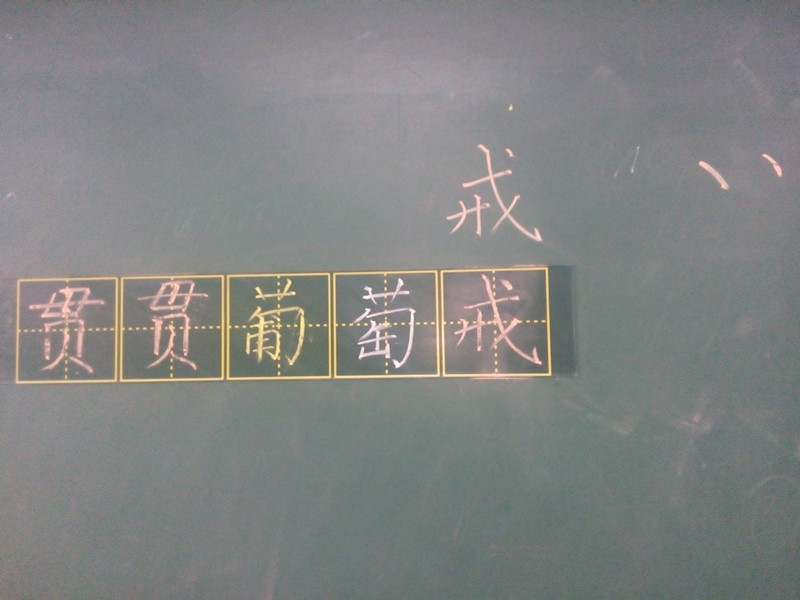 戒
贯贯葡萄戒